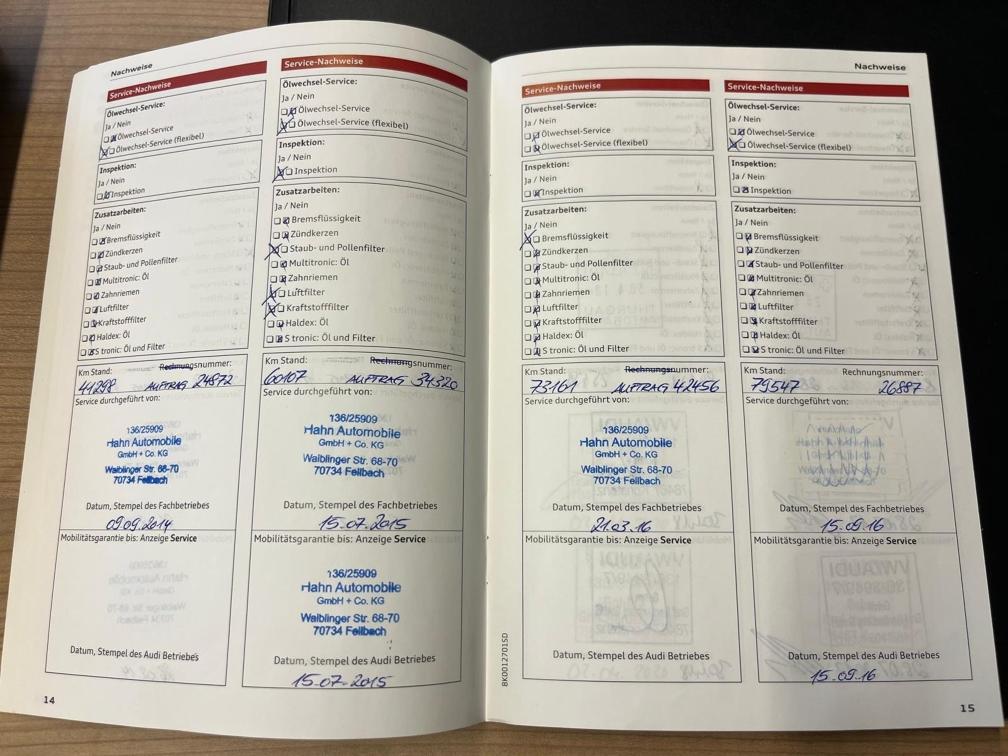 Nachweise
Service-Nachweise
Ölwechsel-Service:
Ja / Nein
Ölwechsel-Service
Ölwechsel-Service (flexibel)
Inspektion:
Ja / Nein
Inspektion
Zusatzarbeiten:
Ja / Nein
Bremsflüssigkeit
Zündkerzen
Staub- und Pollenfilter
Multitronic: Öl
Zahnriemen
Luftfilter
Kraftstofffilter
Haldex: Öl
S tronic: Öl und Filter
Km Stand: Rechnungsnummer:
44298 AUFTRAG 24872
Service durchgeführt von:
136/25909
Hahn Automobile
GmbH + Co. KG
Waiblinger Str. 68-70
70734 Fellbach
Datum, Stempel des Fachbetriebes
09.09.2014
Mobilitätsgarantie bis: Anzeige Service
Datum, Stempel des Audi Betriebes
14
Service-Nachweise
Ölwechsel-Service:
Ja / Nein
Ölwechsel-Service
Ölwechsel-Service (flexibel)
Inspektion:
Ja / Nein
Inspektion
Zusatzarbeiten:
Ja / Nein
Bremsflüssigkeit
Zündkerzen
Staub- und Pollenfilter
Multitronic: Öl
Zahnriemen
Luftfilter
Kraftstofffilter
Haldex: Öl
S tronic: Öl und Filter
Km Stand: Rechnungsnummer:
60107 AUFTRAG 34320
Service durchgeführt von:
136/25909
Hahn Automobile
GmbH + Co. KG
Waiblinger Str. 68-70
70734 Fellbach
Datum, Stempel des Fachbetriebes
15.07.2015
Mobilitätsgarantie bis: Anzeige Service
136/25909
Hahn Automobile
GmbH + Co. KG
Waiblinger Str. 68-70
70734 Fellbach
Datum, Stempel des Audi Betriebes
15.07.2015
Nachweise
Service-Nachweise
Ölwechsel-Service:
Ja / Nein
Ölwechsel-Service
Ölwechsel-Service (flexibel)
Inspektion:
Ja / Nein
Inspektion
Zusatzarbeiten:
Ja / Nein
Bremsflüssigkeit
Zündkerzen
Staub- und Pollenfilter
Multitronic: Öl
Zahnriemen
Luftfilter
Kraftstofffilter
Haldex: Öl
S tronic: Öl und Filter
Km Stand: Rechnungsnummer:
73161 AUFTRAG 42456
Service durchgeführt von:
136/25909
Hahn Automobile
GmbH + Co. KG
Waiblinger Str. 68-70
70734 Fellbach
Datum, Stempel des Fachbetriebes
21.03.16
Mobilitätsgarantie bis: Anzeige Service
Datum, Stempel des Audi Betriebes
BK0012701SD
Service-Nachweise
Ölwechsel-Service:
Ja / Nein
Ölwechsel-Service
Ölwechsel-Service (flexibel)
Inspektion:
Ja / Nein
Inspektion
Zusatzarbeiten:
Ja / Nein
Bremsflüssigkeit
Zündkerzen
Staub- und Pollenfilter
Multitronic: Öl
Zahnriemen
Luftfilter
Kraftstofffilter
Haldex: Öl
S tronic: Öl und Filter
Km Stand: Rechnungsnummer:
79547 26887
Service durchgeführt von:
Datum, Stempel des Fachbetriebes
15.09.16
Mobilitätsgarantie bis: Anzeige Service
Datum, Stempel des Audi Betriebes
15.09.16
15